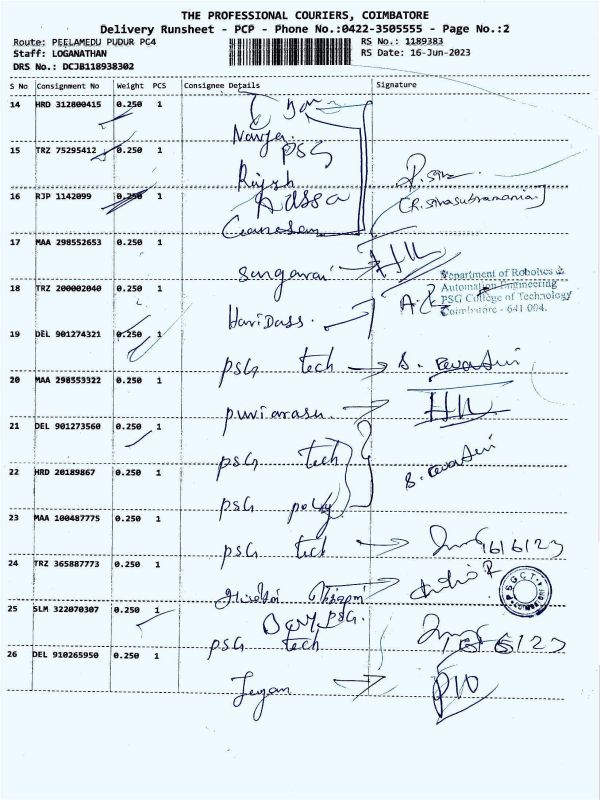 THE PROFESSIONAL COURIERS, COIMBATORE
Delivery Runsheet - PCP - Phone No.:0422-3505555 - Page No.:2
Route: PEELAMEDU PUDUR PC4 RS No.: 1189383
Staff: LOGANATHAN RS Date: 16-Jun-2023
DRS No.: DCJB118938302
S No Consignment No Weight PCS Consignee Details Signature
14 HRD 312800415 0.250 1
15 TRZ 75295412 0.250 1 PSG
Rajesh
16 RJP 1142099 0.250 1
(R. Sivasubramania)
17 MAA 298552653 0.250 1
18 TRZ 200002040 0.250 1 Hari Dass.
Department of Robotics &
Automation Engineering
PSG College of Technology
Coimbatore - 641 004.
19 DEL 901274321 0.250 1 PSG tech
20 MAA 298553322 0.250 1 puviarasu.
21 DEL 901273560 0.250 1 PSG tech
22 HRD 20189867 0.250 1 PSG poly
23 MAA 100487775 0.250 1 PSG tech 16/6/23
24 TRZ 365887773 0.250 1
PSGCT
COIMBATORE
25 SLM 322070307 0.250 1 PSG tech 16/6/23
26 DEL 910265950 0.250 1 Jeyan